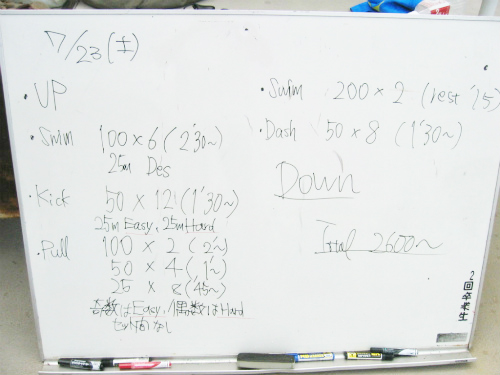 7/23(土)
・UP
・Swim 100×6 (2'30~)
25m Des
・Kick 50×12 (1'30~)
25m Easy, 25m Hard
・Pull 100×2 (2'~)
50×4 (1'~)
25×8 (45~)
奇数はEasy, 偶数はHard
セット間なし
・Swim 200×2 (rest '15)
・Dash 50×8 (1'30~)
Down
Total 2600~
2回卒業生